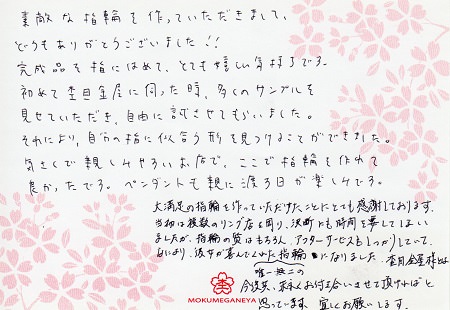 素敵な指輪を作っていただきまして、
どうもありがとうございました!!
完成品を指にはめて、とても嬉しい気持ちです。
初めて杢目金屋に伺った時、多くのサンプルを
見せていただき、自由に試させてもらいました。
それにより、自分の指に似合う形を見つけることができました。
気さくで親しみやすいお店で、ここで指輪を作れて
良かったです。ペンダントも親に渡る日が楽しみです。
大満足の指輪を作っていただけたことにとても感謝しております。
当初は複数のリング店を周り、決断にも時間を要してしまい
ましたが、指輪の質はもちろん、アフターサービスもしっかりしていて、
何より、彼女が喜んでくれた指輪になりました。杢目金屋様とは
唯一無二の
今後共、末永くお付き合いさせて頂ければと
思っています。宜しくお願いします。
MOKUMEGANEYA